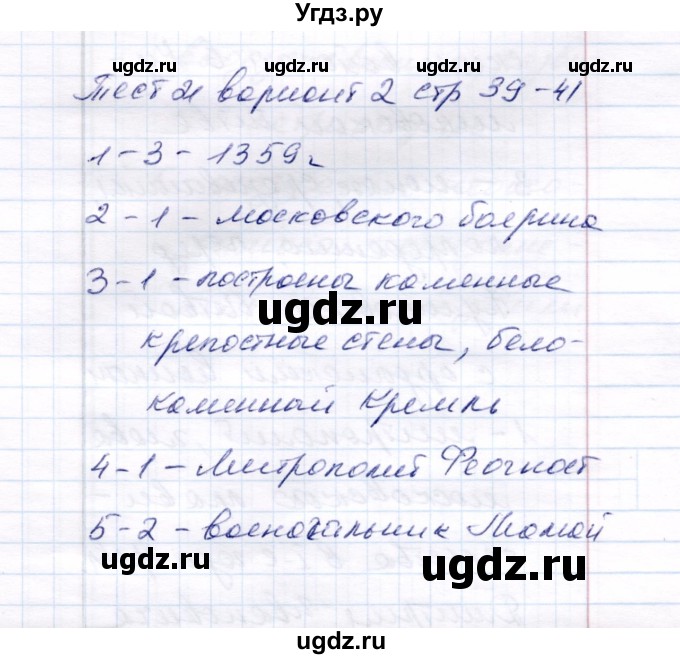 Угдз.ру
ugdz.ru ugdz.ru ugdz.ru
Тест 21 вариант 2 стр 39-41
1-3-1359г
2-1-Московского боярина
ugdz.ru
3-1-построены каменные
ugdz.ru
крепостные стены, бело-
ugdz.ru ugdz.ru
каменный Кремль
4-1-Митрополит Феогност
5-2-военочальник Мамай
ugdz.ru
ugdz.ru ugdz.ru
ugdz.ru